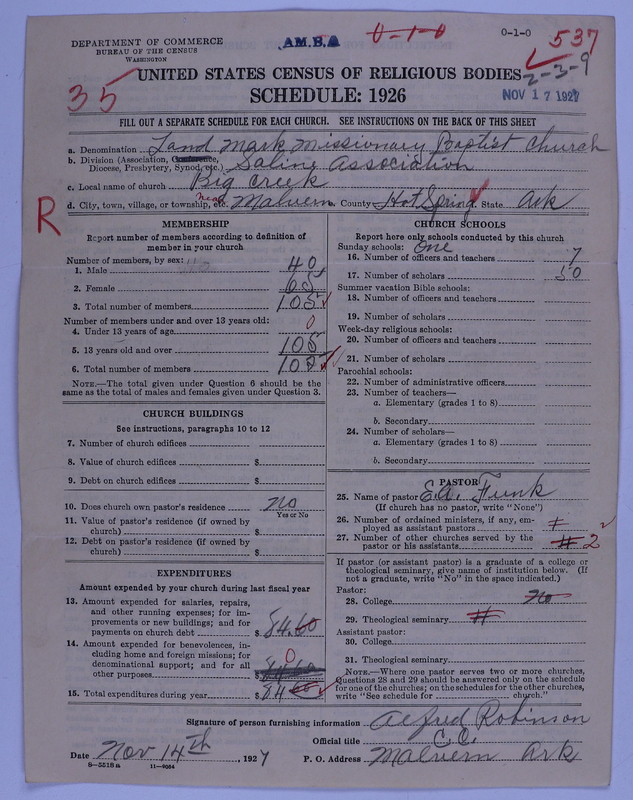 DEPARTMENT OF COMMERCE
BUREAU OF THE CENSUS
WASHINGTON
A.M.B.A
0-1-0
0-1-0
537
2-3-9
NOV 17 1927
35
UNITED STATES CENSUS OF RELIGIOUS BODIES
SCHEDULE: 1926
FILL OUT A SEPARATE SCHEDULE FOR EACH CHURCH. SEE INSTRUCTIONS ON THE BACK OF THIS SHEET
a. Denomination Land Mark Missionary Baptist Church
b. Division (Association, Conference, Diocese, Presbytery, Synod, etc.) Saline Association
c. Local name of church Big Creek
d. City, town, village, or township, etc. near Malvern County Hot Spring State Ark
R
MEMBERSHIP
Report number of members according to definition of
member in your church
Number of members, by sex:
1. Male 40
2. Female 65
3. Total number of members 105
Number of members under and over 13 years old:
4. Under 13 years of age 0
5. 13 years old and over 105
6. Total number of members 105
NOTE.—The total given under Question 6 should be
same as the total of males and females given under Question 3.
CHURCH BUILDINGS
See instructions, paragraphs 10 to 12
7. Number of church edifices
8. Value of church edifices $
9. Debt on church edifices $
10. Does church own pastor's residence no
Yes or No
11. Value of pastor's residence (if owned by
church) $
12. Debt on pastor's residence (if owned by
church) $
EXPENDITURES
Amount expended by your church during last fiscal year
13. Amount expended for salaries, repairs,
and other running expenses; for im-
provements or new buildings; and for
payments on church debt $ 84.60
14. Amount expended for benevolences, in-
cluding home and foreign missions; for
denominational support; and for all
other purposes $ 84.60 0
15. Total expenditures during year $ 84.60
CHURCH SCHOOLS
Report here only schools conducted by this church
Sunday schools: One
16. Number of officers and teachers 7
17. Number of scholars 50
Summer vacation Bible schools:
18. Number of officers and teachers
19. Number of scholars
Week-day religious schools:
20. Number of officers and teachers
21. Number of scholars
Parochial schools:
22. Number of administrative officers
23. Number of teachers—
a. Elementary (grades 1 to 8)
b. Secondary
24. Number of scholars—
a. Elementary (grades 1 to 8)
b. Secondary
PASTOR
25. Name of pastor E.A. Funk
(If church has no pastor, write "None")
26. Number of ordained ministers, if any, em-
ployed as assistant pastors
27. Number of other churches served by the
pastor or his assistants 2
If pastor (or assistant pastor) is a graduate of a college or
theological seminary, give name of institution below. (If
not a graduate, write "No" in the space indicated.)
Pastor:
28. College no
29. Theological seminary
Assistant pastor:
30. College
31. Theological seminary
NOTE.—Where one pastor serves two or more churches,
Questions 28 and 29 should be answered only on the schedule
for one of the churches; on the schedules for the other churches,
write "See schedule for church."
Signature of person furnishing information Alfred Robinson
Official title C.C.
Date Nov 14th, 1927 P. O. Address Malvern Ark
8-5518 a 11-9664